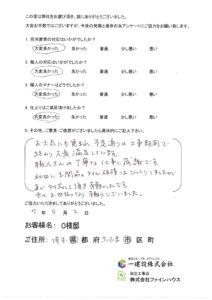 この度は弊社をお選び頂き、誠にありがとうございました。
大変お手数ではございますが、今後の発展と進歩の為アンケートにご協力をお願い致します。
1. 担当営業の対応はいかがでしたか？
大変良かった 良かった 普通 少し悪い 悪い
2. 職人の対応はいかがでしたか？
大変良かった 良かった 普通 少し悪い 悪い
3. 職人のマナーはどうでしたか？
大変良かった 良かった 普通 少し悪い 悪い
4. 仕上りはご満足頂けましたか？
大変良かった 良かった 普通 少し悪い 悪い
5. その他、ご意見・ご感想がございましたら具体的にご記入下さい。
お天気にも恵まれ、予定通りの工事期間で
終わり大変満足しています。
職人さんの丁寧な仕事に感激です。
ありがとうございました。
ご協力いただきましてありがとうございました。
7年5月2日
お客様名: O様邸
ご住所: 埼玉県都府さいたま市区町
一建設株式会社
施工工事店
株式会社ファインハウス